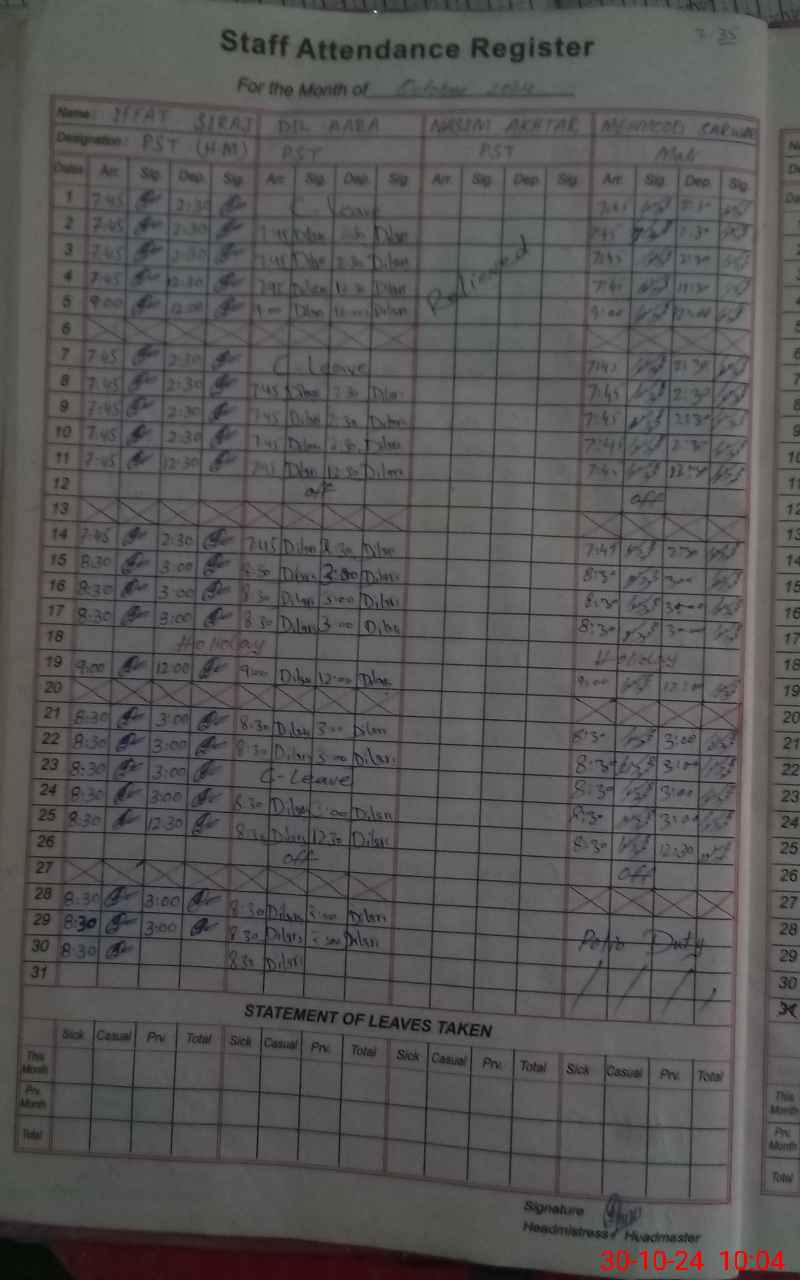 7-35
Staff Attendance Register
For the Month of October 2024
Name: IFFAT SIRAJ DIL AARA NASIM AKHTAR MEHMOOD SARWAR
Designation: PST (H.M) PST PST Mali
Dates Arr. Sig. Dep. Sig. Arr. Sig. Dep. Sig. Arr. Sig. Dep. Sig. Arr. Sig. Dep. Sig.
1 7:45 2:30 C-Leave 7:45 2:30
2 7:45 2:30 7:45 Dilan 2:30 Dilan 7:45 2:30
3 7:45 2:30 7:45 Dilan 2:30 Dilan Relieved 7:45 2:30
4 7:45 12:30 7:45 Dilan 12:30 Dilan 7:45 12:30
5 9:00 12:00 9:00 Dilan 12:00 Dilan 9:00 12:00
6
7 7:45 2:30 C-Leave 7:45 2:30
8 7:45 2:30 7:45 Dilan 2:30 Dilan 7:45 2:30
9 7:45 2:30 7:45 Dilan 2:30 Dilan 7:45 2:30
10 7:45 2:30 7:45 Dilan 2:30 Dilan 7:45 2:30
11 7:45 12:30 7:45 Dilan 12:30 Dilan 7:45 12:30
12 off off
13
14 7:45 2:30 7:45 Dilan 2:30 Dilan 7:45 2:30
15 8:30 3:00 8:30 Dilan 3:00 Dilan 8:30 3:00
16 8:30 3:00 8:30 Dilan 3:00 Dilan 8:30 3:00
17 8:30 3:00 8:30 Dilan 3:00 Dilan 8:30 3:00
18 Holiday Holiday
19 9:00 12:00 9:00 Dilan 12:00 Dilan 9:00 12:00
20
21 8:30 3:00 8:30 Dilan 3:00 Dilan 8:30 3:00
22 8:30 3:00 8:30 Dilan 3:00 Dilan 8:30 3:00
23 8:30 3:00 C-Leave 8:30 3:00
24 8:30 3:00 8:30 Dilan 3:00 Dilan 8:30 3:00
25 8:30 12:30 8:30 Dilan 12:30 Dilan 8:30 12:30
26 off off
27
28 8:30 3:00 8:30 Dilan 3:00 Dilan
29 8:30 3:00 8:30 Dilan 3:00 Dilan Polio Duty
30 8:30 8:30 Dilan
31
STATEMENT OF LEAVES TAKEN
Sick Casual Prv. Total Sick Casual Prv. Total Sick Casual Prv. Total Sick Casual Prv. Total
This Month
Prv. Month
Total
Signature
Headmistress / Headmaster
30-10-24 10:04